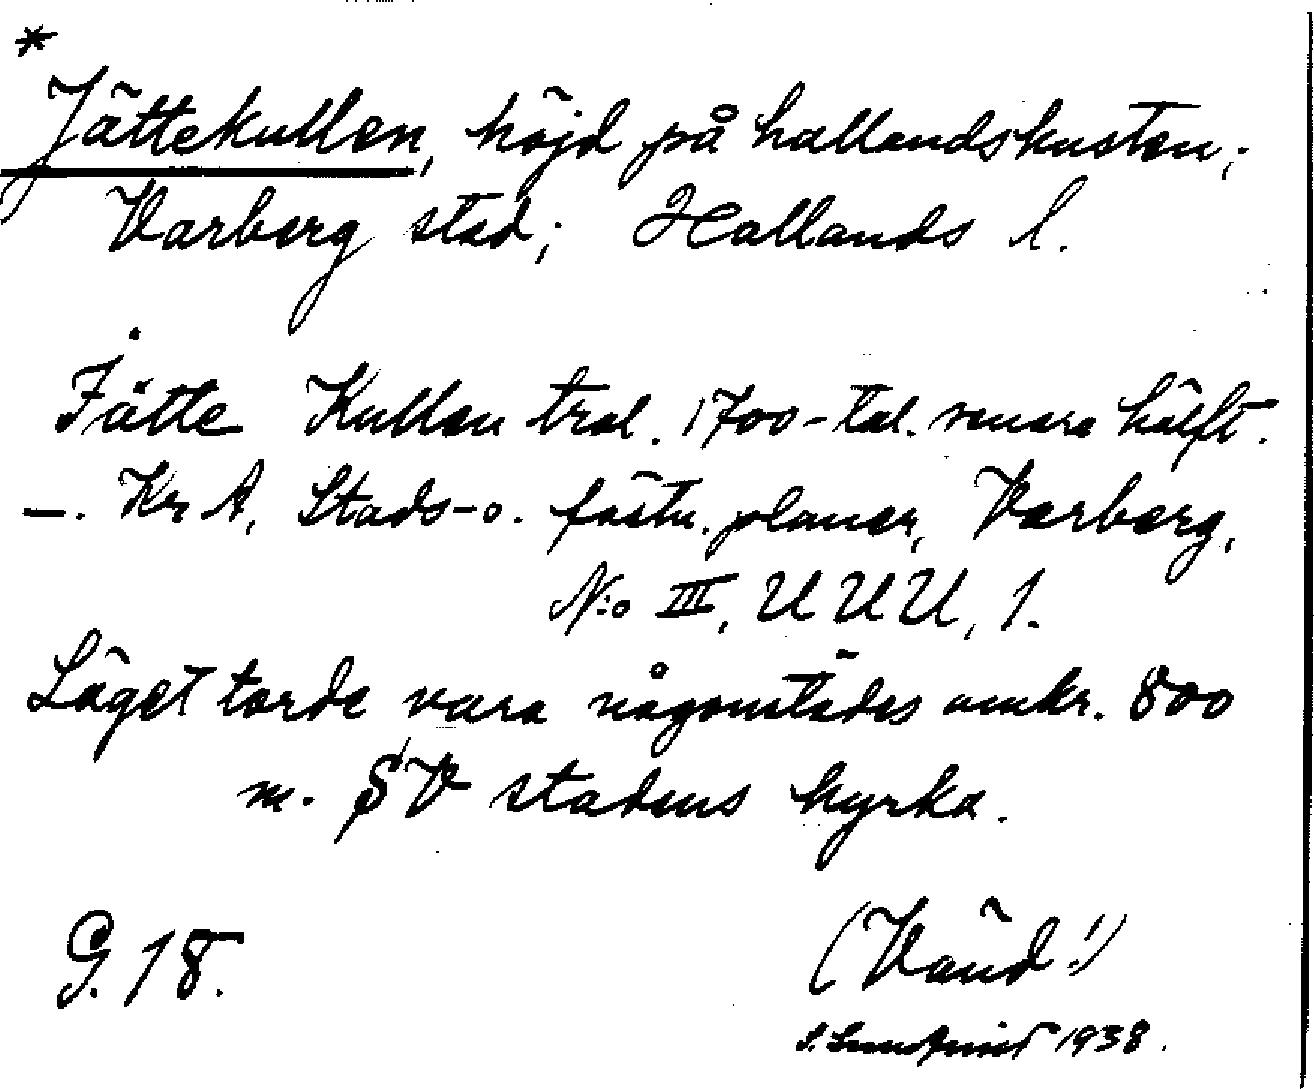 *
Jättekullen, höjd på hallandskusten;
Varberg stad; Hallands l.
Jätte Kullen trol. 1700-tal. senare hälft.
—. KrA, Stads- o. fästn. planer, Varberg,
N:o III, U U U, 1.
Läget torde vara någonstädes omkr. 800
m. SV stadens kyrka.
G. 18.
(Vänd!)
1938.